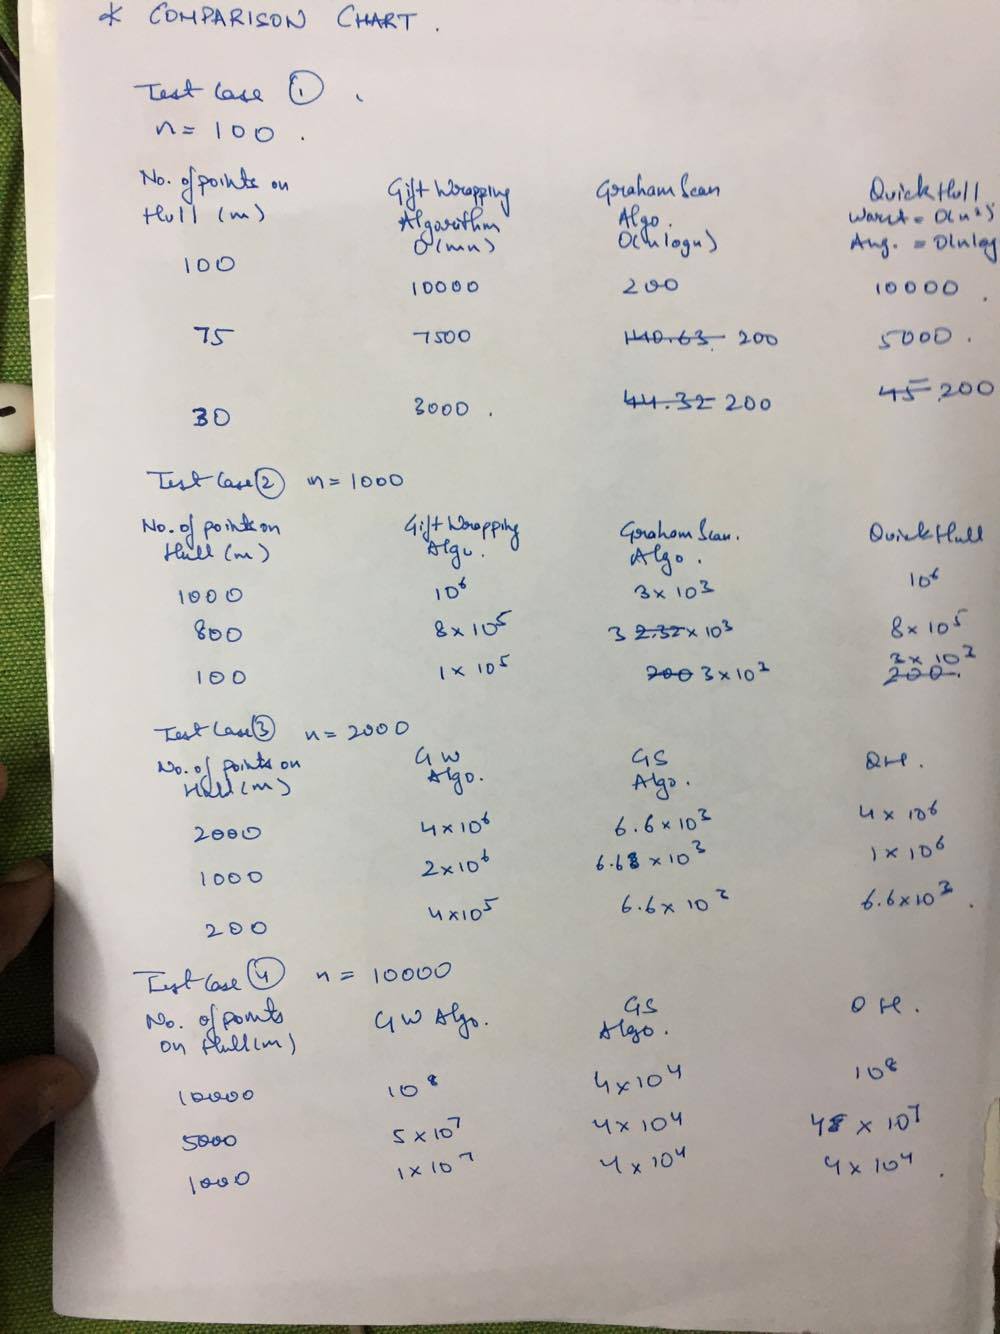 * COMPARISON CHART.
Test Case ① .
n = 100 .
No. of points on Hull (m) Gift Wrapping Algorithm O(mn) Graham Scan Algo. O(n logn) Quick Hull Worst = O(n²) Avg. = O(nlog
100 10000 200 10000 .
75 7500 140.63 200 5000 .
30 3000 . 44.32 200 45 200
Test Case ② n = 1000
No. of points on Hull (m) Gift Wrapping Algo. Graham Scan. Algo. Quick Hull
1000 10⁶ 3 x 10³ 10⁶
800 8 x 10⁵ 3 2.32 x 10³ 8 x 10⁵
100 1 x 10⁵ 200 3 x 10³ 3 x 10³ 200.
Test Case ③ n = 2000
No. of points on Hull (m) GW Algo. GS Algo. QH.
2000 4 x 10⁶ 6.6 x 10³ 4 x 10⁶
1000 2 x 10⁶ 6.6 x 10³ 1 x 10⁶
200 4 x 10⁵ 6.6 x 10³ 6.6 x 10³ .
Test Case ④ n = 10000
No. of points on Hull (m) GW Algo. GS Algo. QH.
10000 10⁸ 4 x 10⁴ 10⁸
5000 5 x 10⁷ 4 x 10⁴ x 10⁷
1000 1 x 10⁷ 4 x 10⁴ 4 x 10⁴ .